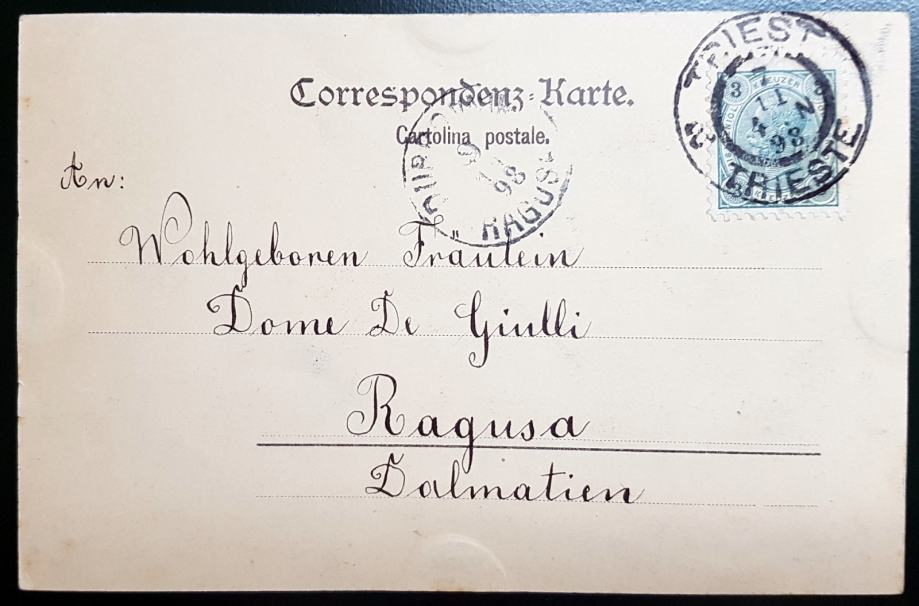 Correspondenz-Karte.
Cartolina postale.
TRIEST
3
11
4
98
N
TRIESTE
98
RAGUSA
An:
Wohlgeboren Fräulein
Dome De Giulli
Ragusa
Dalmatien